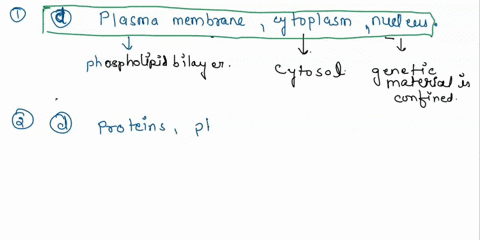 ① ⓓ Plasma membrane, cytoplasm, nucleus.
phospholipid bilayer. cytosol genetic
material is
confined.
② ⓓ Proteins, pl